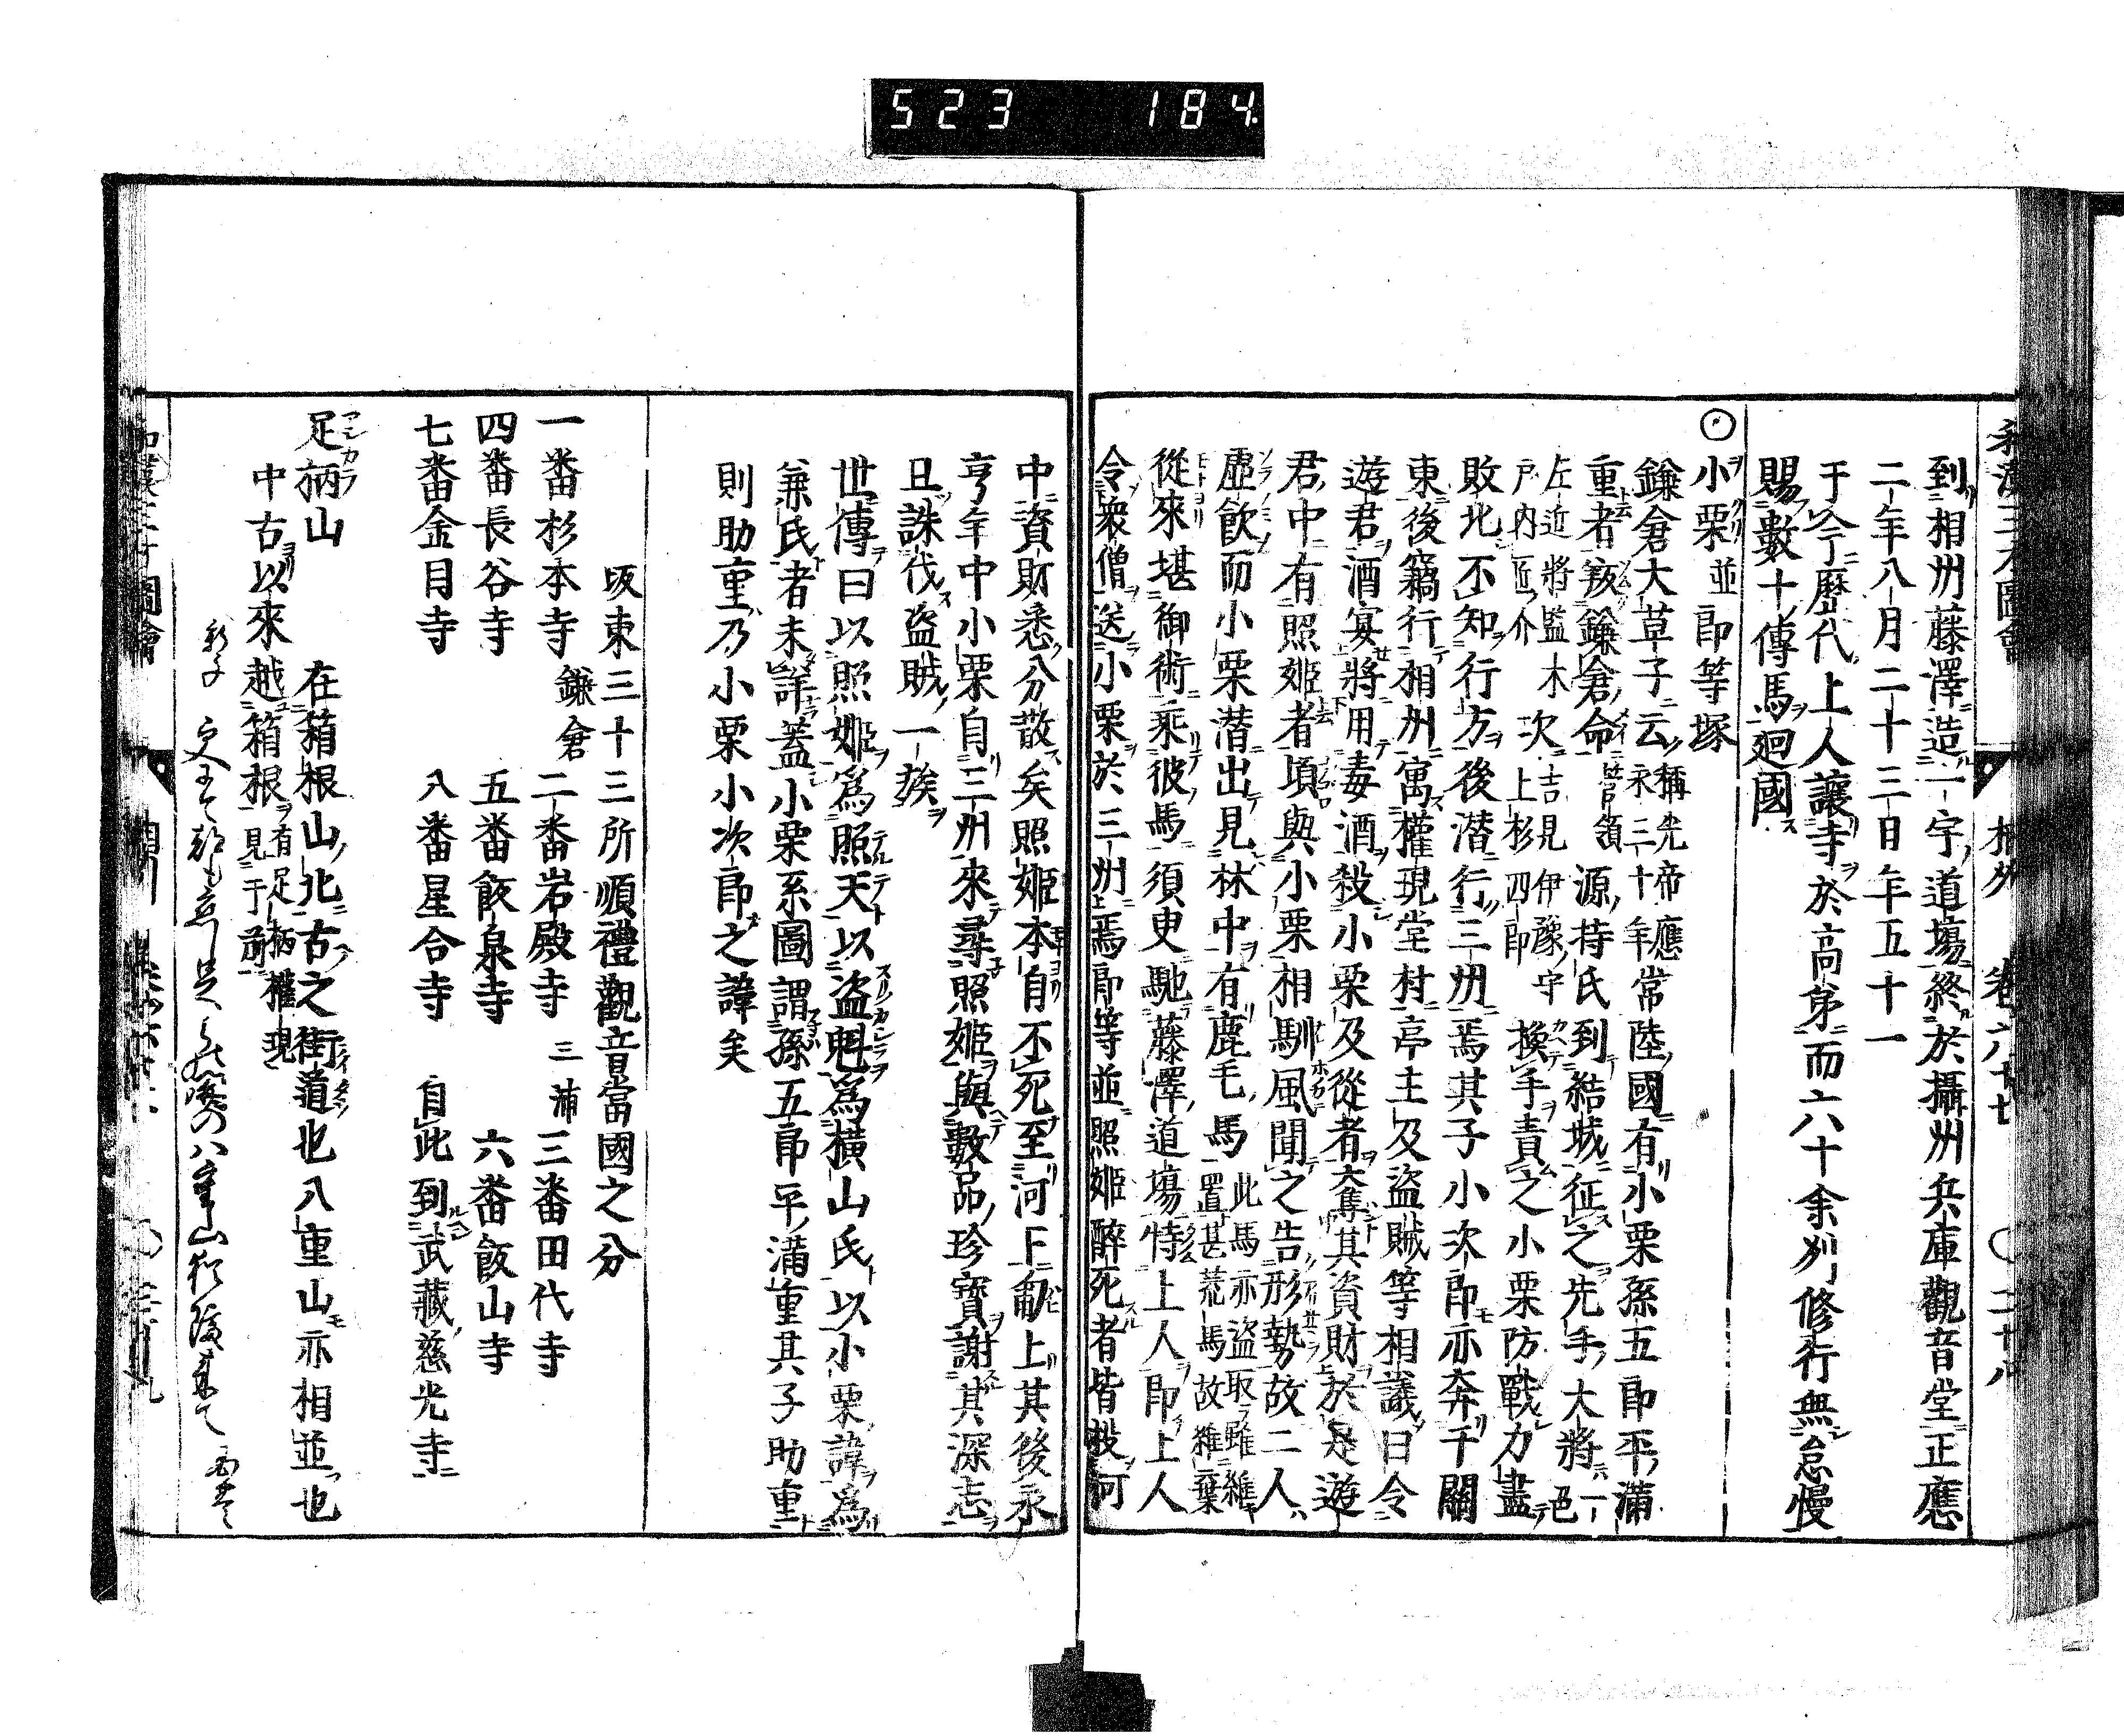 523 184.
相州 卷六十七 ○二十八
到相州藤澤造一宇道塲終於攝州兵庫觀音堂正應
二年八月二十三日年五十一
于今歷代上人讓寺於高弟而六十余列修行無怠慢
賜數十傳馬廻國
小栗並郎等塚
鎌倉大草子云稱光帝應永二十年常陸國有小栗孫五郎平滿
重者叛鎌倉命管領源持氏到結城征之先手大將一色
左近將監木戸内匠介次吉見伊豫守上杉四郎換手責之小栗防戰力盡
敗北不知行方後潜行三州焉其子小次郎亦奔于關
東後竊行相州寓權現堂村亭主及盜賊等相議曰令
遊君酒宴將用毒酒殺小栗及從者奪其資財於是遊
君中有照姬者頃與小栗相馴風聞之告形勢故二人
虛飮而小栗潜出見林中有鹿毛馬此馬亦盜取雖繼置甚荒馬故雜棄
從來堪御術乘彼馬須臾馳藤澤道塲恃上人即上人
令衆僧送小栗於三州焉郎等並照姬醉死者皆投河
中資財悉分散矣照姬本自不死至河下匍上其後永
亨年中小栗自三州來尋照姬與數品珍寶謝其深志
且誅伐盜賊一族
世傳曰以照姬爲照天以盜魁爲橫山氏以小栗諱爲
兼氏者未詳蓋小栗系圖謂孫五郎平滿重其子助重
則助重乃小栗小次郎之諱矣
坂東三十三所順禮觀音當國之分
一番杉本寺鎌倉 二番岩殿寺三浦 三番田代寺
四番長谷寺 五番飯泉寺 六番飯山寺
七番金目寺 八番星合寺 自此到武藏慈光寺
足柄山 在箱根山北古之街道也八重山亦相並也
中古以來越箱根有足柄權現見于前